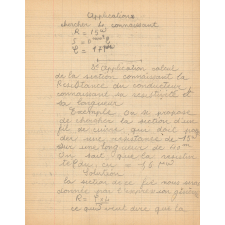 Applications
chercher L connaissant
R = 15 ω
S = 
L = 
3° Application valeur
de la section connaissant la
Résistance du conducteur
connaissant sa résistivité et
sa longueur
Exemple on se propose
de chercher la section d'un
fil de cuivre que doit pos
der une resistance de 15
sur une longueur de 40 m
On sait que la resistivi
té du cu = 1,5
Solution
la section de ce fil nous sera
donnée par l'expression géné
R =
ce qui veut dire que la